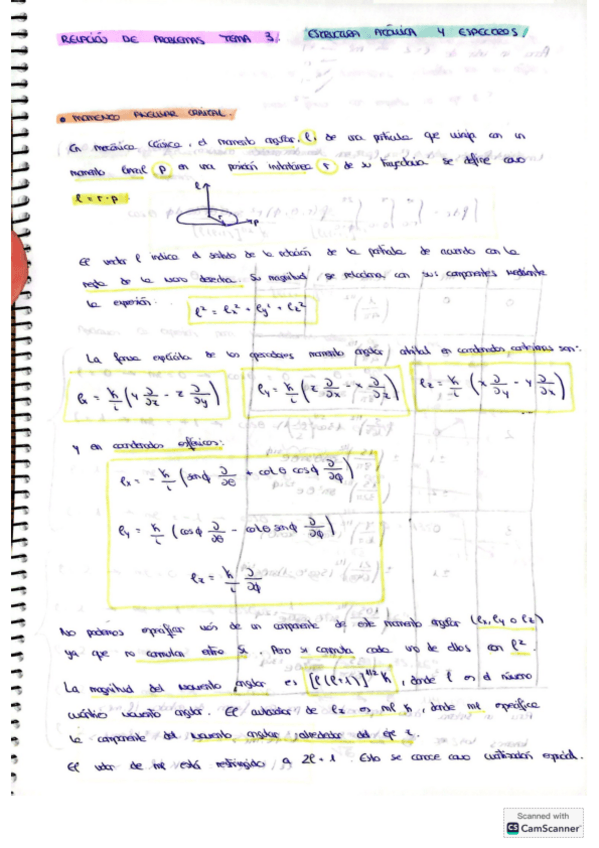 RELACIÓN DE PROBLEMAS TEMA 3. ESTRUCTURA ATÓMICA Y ESPECTROS
• MOMENTO ANGULAR ORBITAL.
En mecánica clásica, el momento angular, l, de una partícula que viaja con un
momento lineal p en una posición instantánea r de su trayectoria se define como
l = r · p
l
r
p
El vector l indica el sentido de la rotación de la partícula de acuerdo con la
regla de la mano derecha. Su magnitud se relaciona con sus componentes mediante
la expresión: l² = lx² + ly² + lz²
La forma explícita de los operadores momento angular orbital en coordenadas cartesianas son:
lx = ħ/i (y ∂/∂z - z ∂/∂y) ly = ħ/i (z ∂/∂x - x ∂/∂z) lz = ħ/i (x ∂/∂y - y ∂/∂x)
y en coordenadas esféricas:
lx = - ħ/i (senϕ ∂/∂θ + cotθ cosϕ ∂/∂ϕ)
ly = ħ/i (cosϕ ∂/∂θ - cotθ senϕ ∂/∂ϕ)
lz = ħ/i ∂/∂ϕ
No podemos especificar más de un componente de este momento angular (lx, ly o lz)
ya que no conmutan entre sí. Pero si conmuta cada uno de ellos con l².
La magnitud del momento angular es [l(l+1)]^1/2 ħ, donde l es el número
cuántico momento angular. El autovalor de lz es ml ħ, donde ml especifica
la componente del momento angular alrededor del eje z.
El valor de ml está restringido a 2l+1. Esto se conoce como cuantización espacial.
Scanned with
CS CamScanner